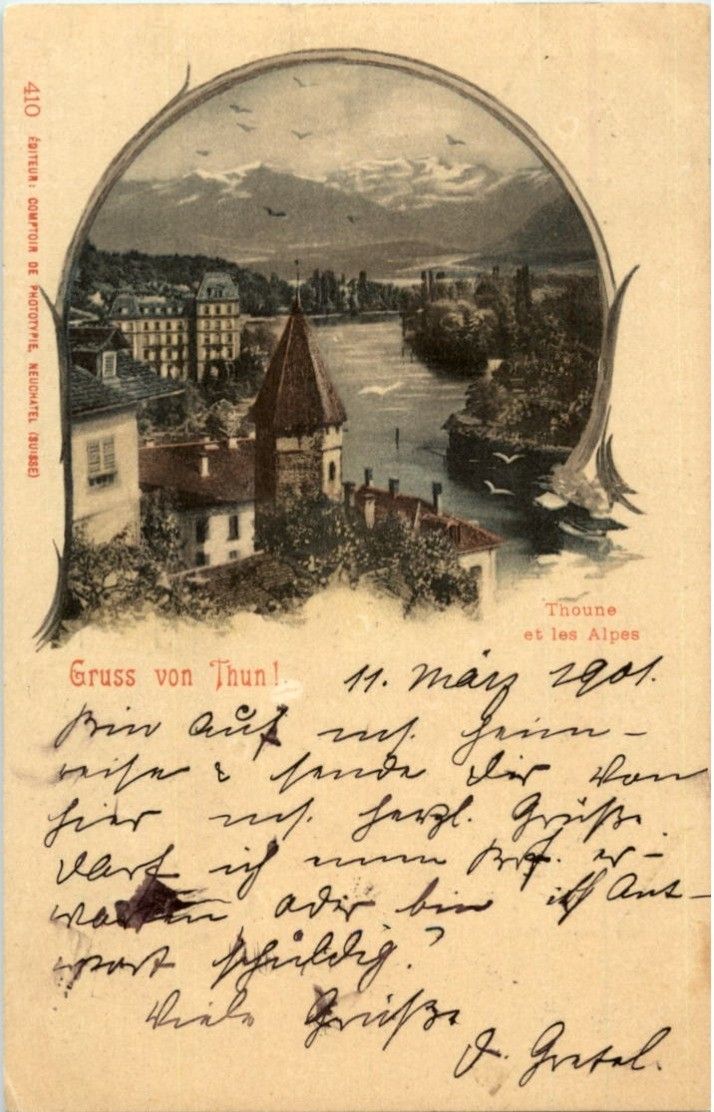 410 ÉDITEUR: COMPTOIR DE PHOTOTYPIE, NEUCHATEL (SUISSE)
Thoune
et les Alpes
Gruss von Thun!
11. März 1901.
Bin auf m. Heim-
reise & sende Dir von
hier m. herzl. Grüße.
Darf ich nun Brf. er-
warten oder bin ich Ant-
wort schuldig?
Viele Grüße
D. Gretel.